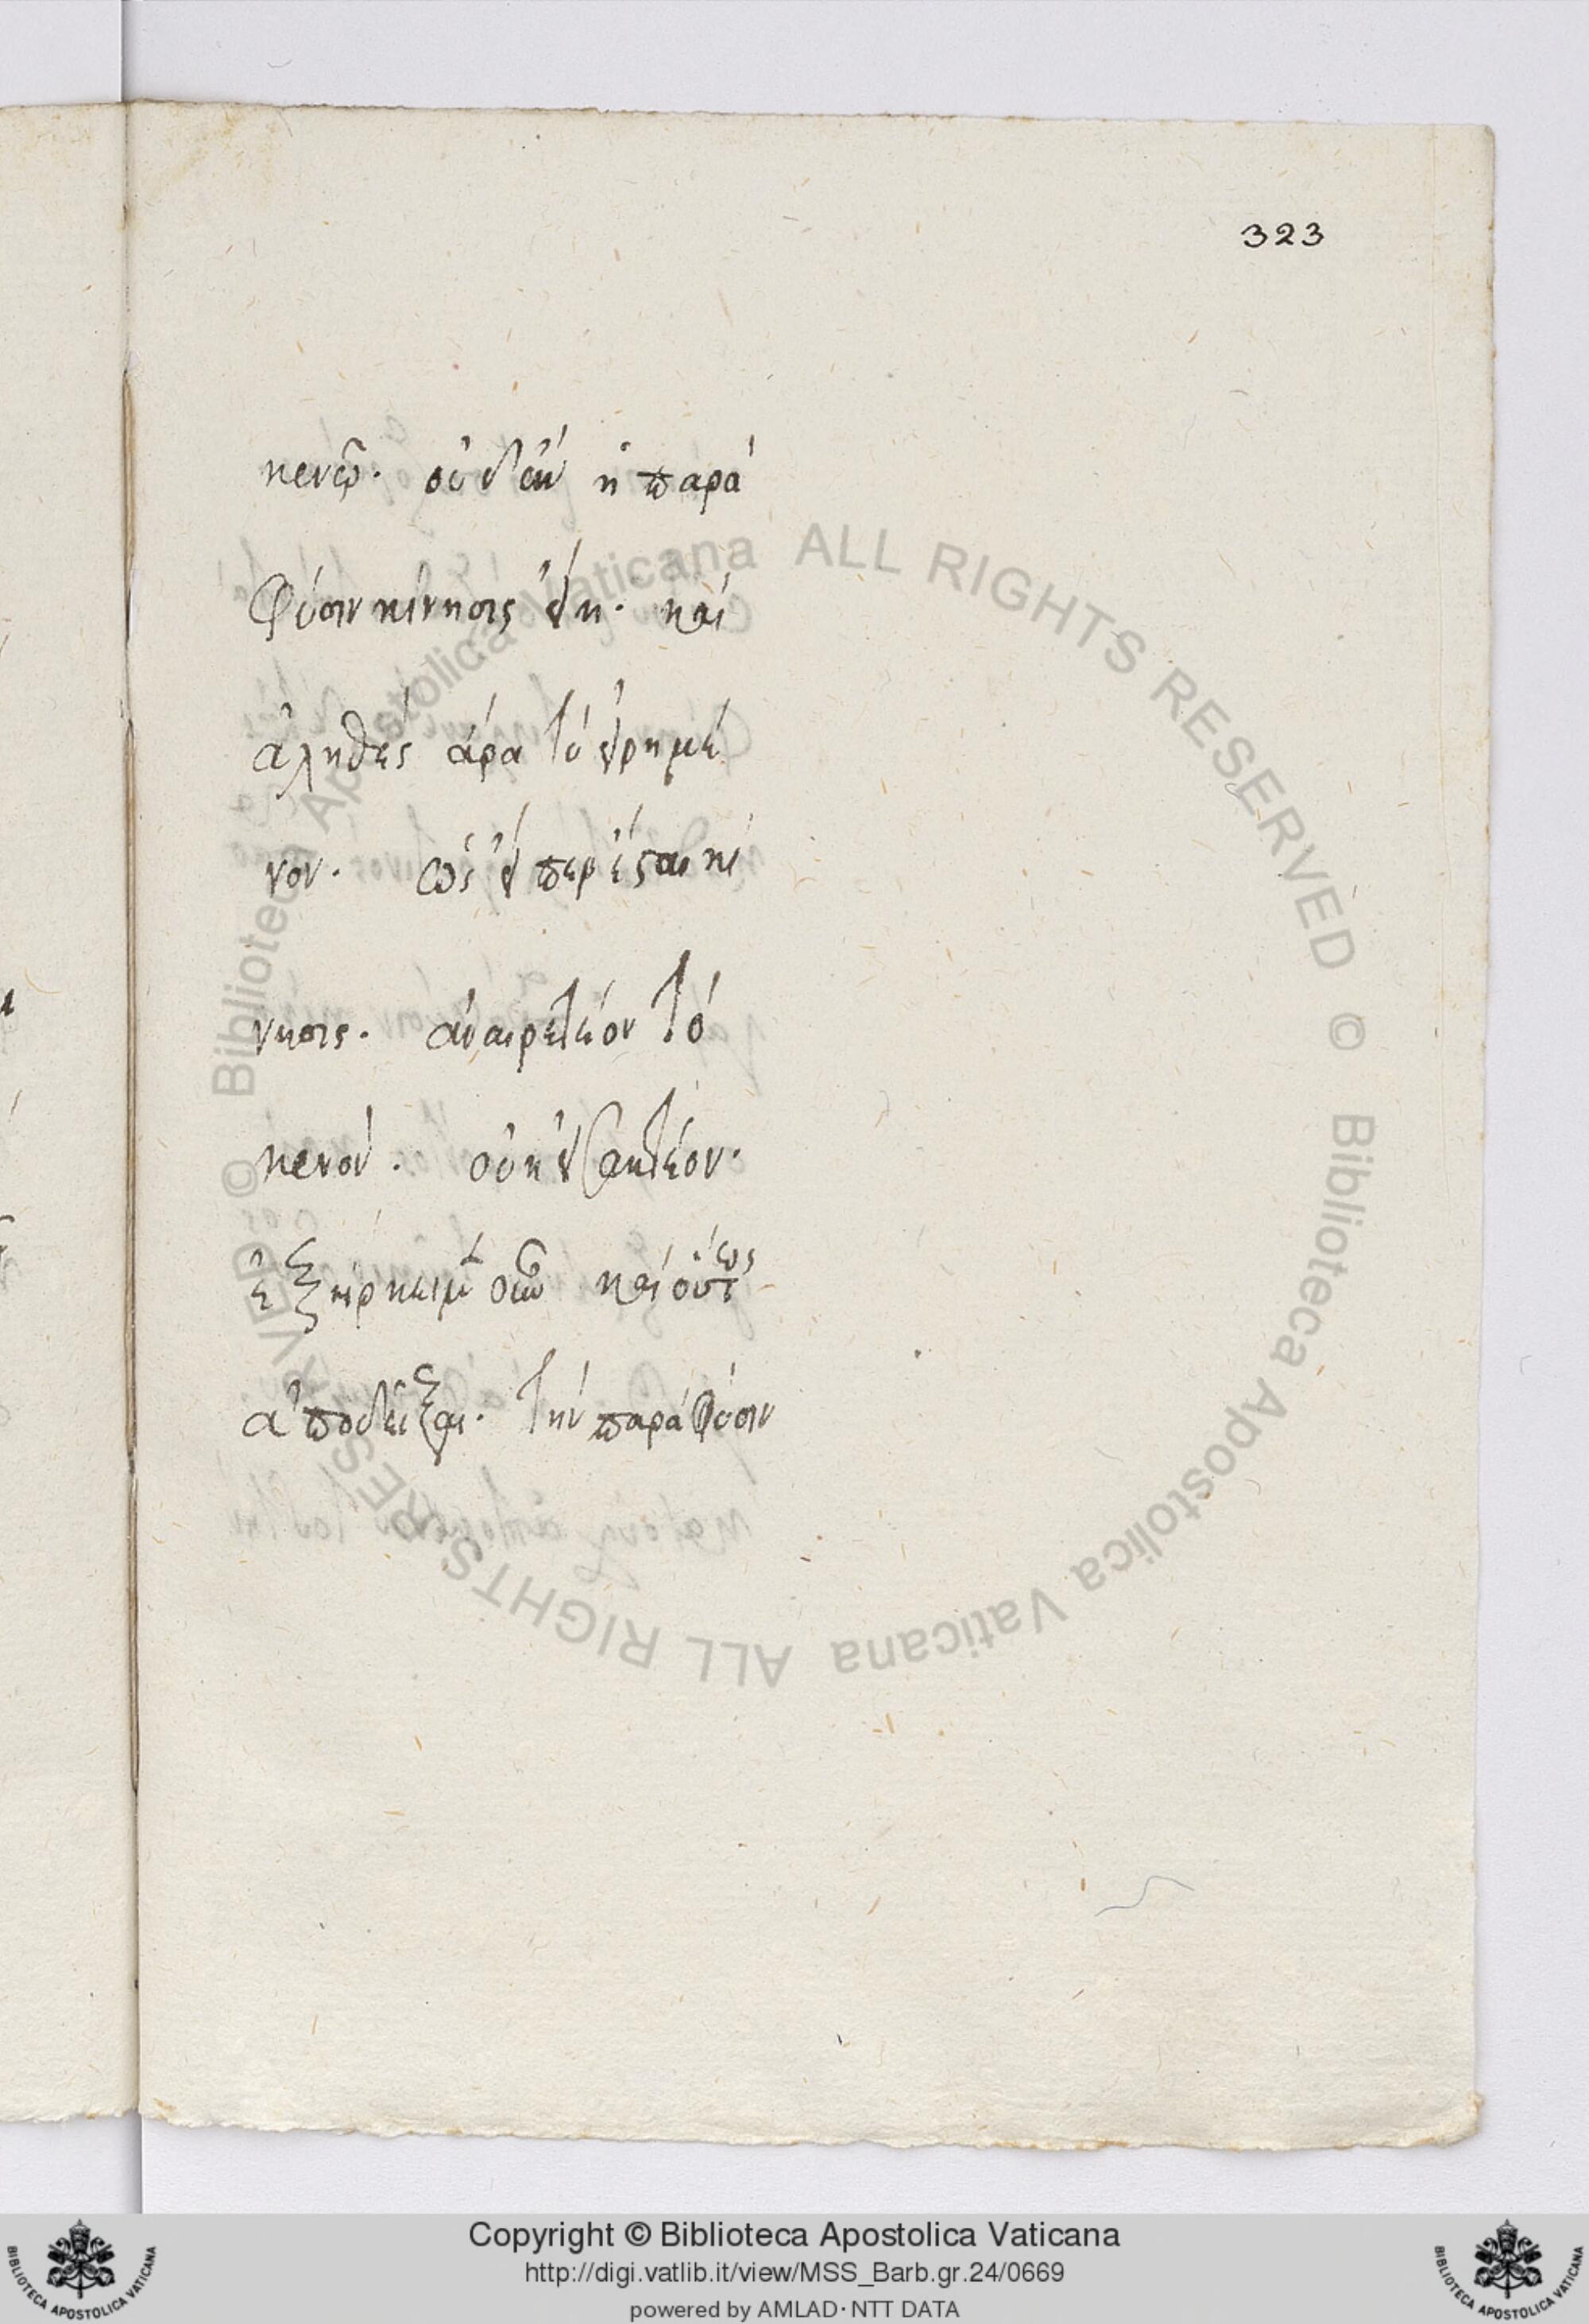 323
κενῶ· οὐδ' ἂν ἡ παρὰ
φύσιν κίνησις εἴη· καὶ
ἀληθὲς ἄρα τὸ εἰρημέ
νον· ὡς εἴπερ ἔσται κί
νησις· ἀναιρετέον τὸ
κενόν· οὐκ εἰσακτέον·
ἐξήρκει μὲν οὖν καὶ οὕτως
ἀποδεῖξαι· τὴν παρὰ φύσιν
© Biblioteca Apostolica Vaticana ALL RIGHTS RESERVED © Biblioteca Apostolica Vaticana ALL RIGHTS RESERVED
Copyright © Biblioteca Apostolica Vaticana
http://digi.vatlib.it/view/MSS_Barb.gr.24/0669
powered by AMLAD·NTT DATA
BIBLIOTECA APOSTOLICA VATICANA
BIBLIOTECA APOSTOLICA VATICANA